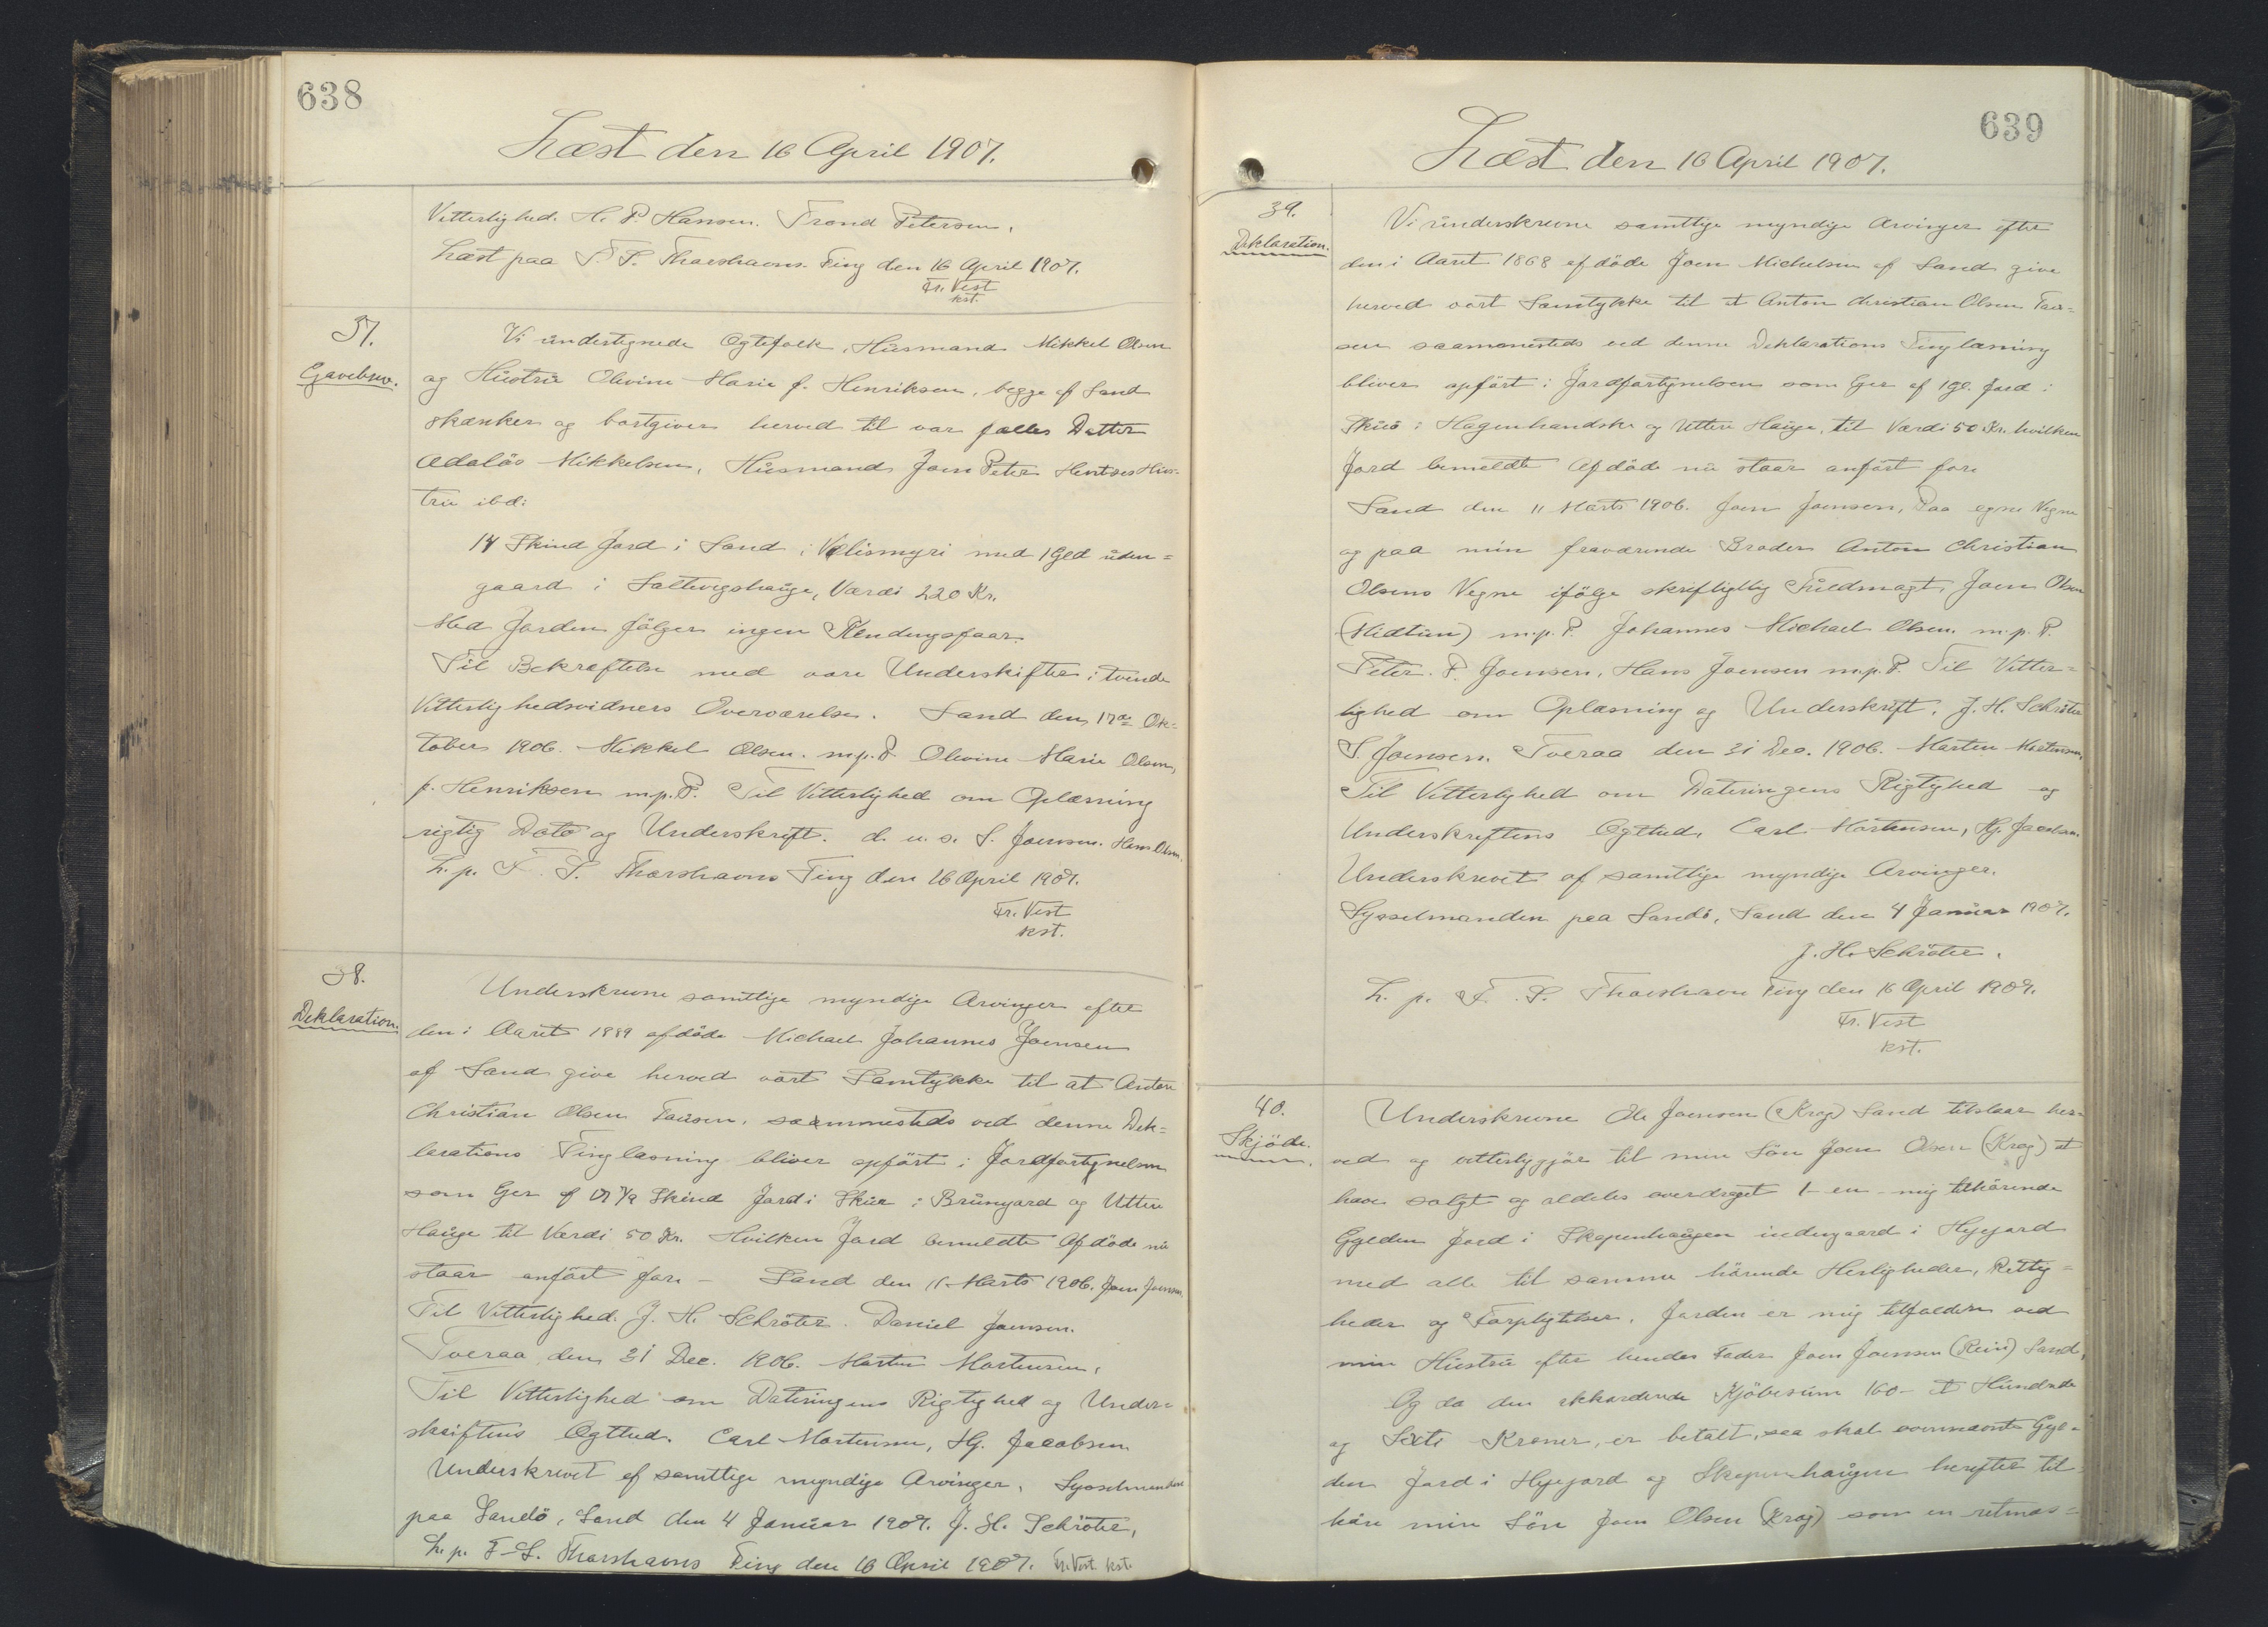 638
Læst den 16 April 1907.
Vitterlighed. H. P. Hansen. Trond Petersen.
Læst paa F. S. Thorshavns Ting den 16 April 1907.
Fr. Vest
kst.
37.
Gavebrev.
Vi undertegnede Ægtefolk, Husmand Mikkel Olsen
og Hustru Olevine Marie f. Henriksen, begge af Sand
skænker og bortgiver herved til vor fælles Datter
Mikkelsen, Husmand Joen Peter Hentzes Hus-
tru ibd:
14 Skind Jord i Sand i Vælismyri med 1 Gld uden=
gaard i Saltevigshauge, Værdi 220 Kr.
Med Jorden følger ingen Kendingsfaar.
Til Bekræftelse med vore Underskifter i tvende
Vitterlighedsvidners Overværelse. Sand den 17de Ok-
tober 1906. Mikkel Olsen. m.p.P. Olevine Marie Olsen,
f. Henriksen m.p.P. Til Vitterlighed om Oplæsning
rigtig Dato og Underskrift. d. u. s. S. Joensen. Hans Olsen.
L. p. F. S. Thorshavns Ting den 16 April 1907.
Fr. Vest
kst.
38.
Deklaration.
Underskrevne samtlige myndige Arvinger efter
den i Aaret 1889 afdøde Michael Johannes Joensen
af Sand give herved vort Samtykke til at Anton
Christian Olsen Tausen, saammesteds ved denne Dek=
larations Tinglæsning bliver opført i Jordfortegnelsen
som Ejer af Skind Jord i Skuø i Brungard og Uttere
Hauge til Værdi 50 Kr. Hvilken Jord bemeldte Afdøde nu
staar anført for. - Sand den 11 Marts 1906. Joen Joensen.
Til Vitterlighed. J. H. Schrøter. Daniel Joensen.
Tveraa, den 31 Dec. 1906. Morten Mortensen.
Til Vitterlighed om Dateringens Rigtighed og Under=
skriftens Ægthed. Carl Mortensen, Hj. Jacobsen.
Underskrevet af samtlige myndige Arvinger. Sysselmanden
paa Sandø, Sand den 4 Januar 1907. J. H. Schrøter,
L. p. F-S. Thorshavns Ting den 16 April 1907. Fr. Vest kst.
639
Læst den 16 April 1907.
39.
Deklaration.
Vi underskrevne samtlige myndige Arvinger efter
den i Aaret 1868 afdøde Joen Michelsen af Sand give
herved vort Samtykke til at Anton Christian Olsen Tau=
sen saamenesteds ved denne Deklarations Tinglæsning
bliver opført i Jordfortegnelsen som Ejer af 1 Gl. Jord i
Skuø i Hagenhandske og Uttere Hauge, til Værdi 50 Kr. hvilken
Jord bemeldte Afdøde nu staar anført fore
Sand den 11 Marts 1906. Joen Joensen, Paa egne Vegne
og paa min fraværende Broder Anton Christian
Olsens Vegne ifølge skriftligtlig Fuldmagt, Joen Olsen
(Midtun) m.p.P. Johannes Michael Olsen. m.p.P.
Peter. P. Joensen, Hans Joensen m.p.P. Til Vitter=
lighed om Oplæsning og Underskrift. J. H. Schrøter
S. Joensen. Tveraa den 31 Dec. 1906. Morten Mortensen,
Til Vitterlighed om Dateringens Rigtighed og
Underskriftens Ægthed, Carl Mortensen, Hj. Jacobsen.
Underskrevet af samtlige myndige Arvinger.
Sysselmanden paa Sandø, Sand den 4 Januar 1907.
J. H. Schrøter.
L. p. F. S. Thorshavn Ting den 16 April 1907.
Fr. Vest
kst.
40.
Skjøde.
Underskrevne Ole Joensen (Krog) Sand tilstaar her=
ved og vitterliggjør til min Søn Joen Olsen (Krog) at
have solgt og aldeles overdraget 1-en-mig tilhørende
Gylden Jord i Skopenhaugen indengaard i Hyjgard
med alle til samme hørende Herligheder, Rettig=
heder og Forpligtelser. Jorden er mig tilfalden ved
min Hustru efter hendes Fader Joen Joensen Sand,
Og da den akkorderede Kjøbesum 160- Et Hundrede
og Sexti - Kroner, er betalt, saa skal ovennævnte Gyl=
den Jord i Hyjgard og Skopenhaugen herefter til=
høre min Søn Joen Olsen (Krog) som en retmæs=